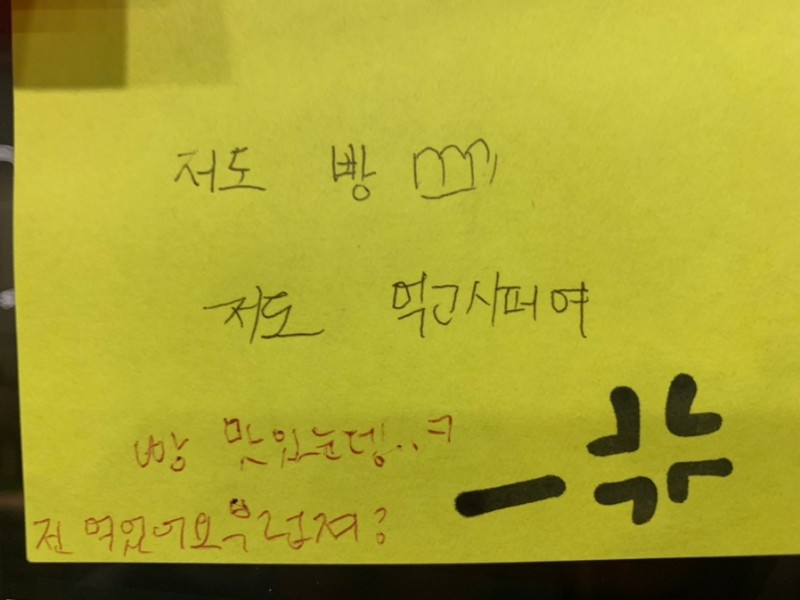 저도 빵
저도 먹고시퍼여
빵 맛있눈뎅..ㅋ
전 먹었어요 부럽져?